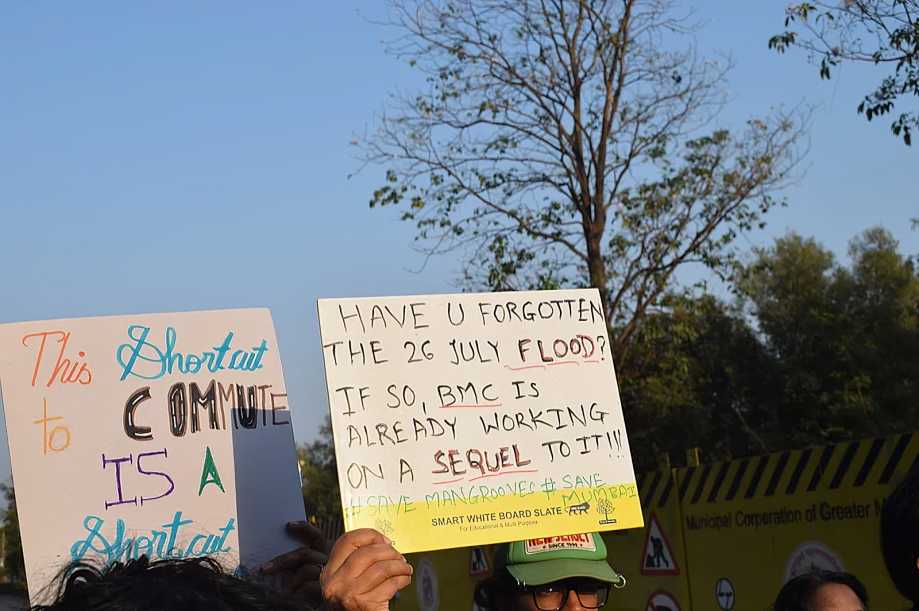 This Shortcut
to COMMUTE
IS A
Shortcut
HAVE U FORGOTTEN
THE 26 JULY FLOOD?
IF SO, BMC IS
ALREADY WORKING
ON A SEQUEL TO IT!!!
#SAVE MANGROVES #SAVE
MUMBAI
SMART WHITE BOARD SLATE
For Educational & Multi Purpose
SINCE 1991
Municipal Corporation of Greater